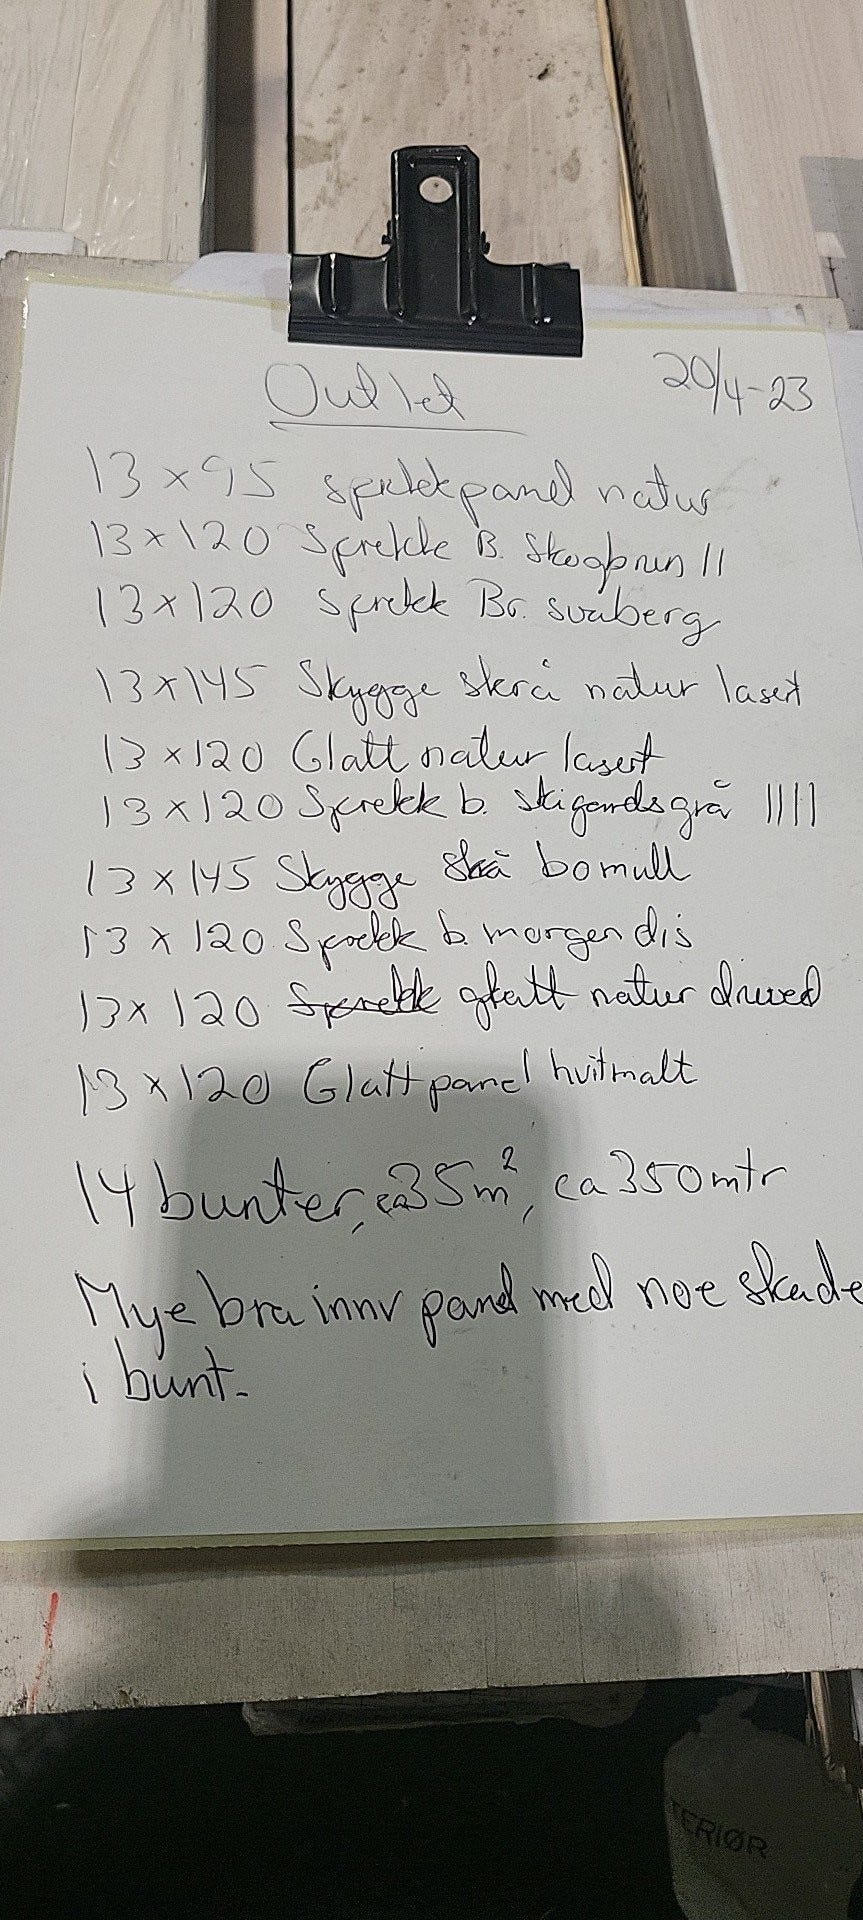 Outlet
20/4-23
13 x 95 sprekkpanel natur
13 x 120 Sprekk B. Skogbrun ||
13 x 120 sprekk Br. svaberg
13 x 145 Skygge skrå natur lasert
13 x 120 Glatt natur lasert
13 x 120 Sprekk b. skigardsgrå ||||
13 x 145 Skygge skå bomull
13 x 120 Sprekk b. morgendis
13 x 120 Sprekk glatt natur druved
13 x 120 Glatt panel hvitmalt
14 bunter, ca 35m², ca 350 mtr
Mye bra innv panel med noe skade
i bunt.
TERIØR